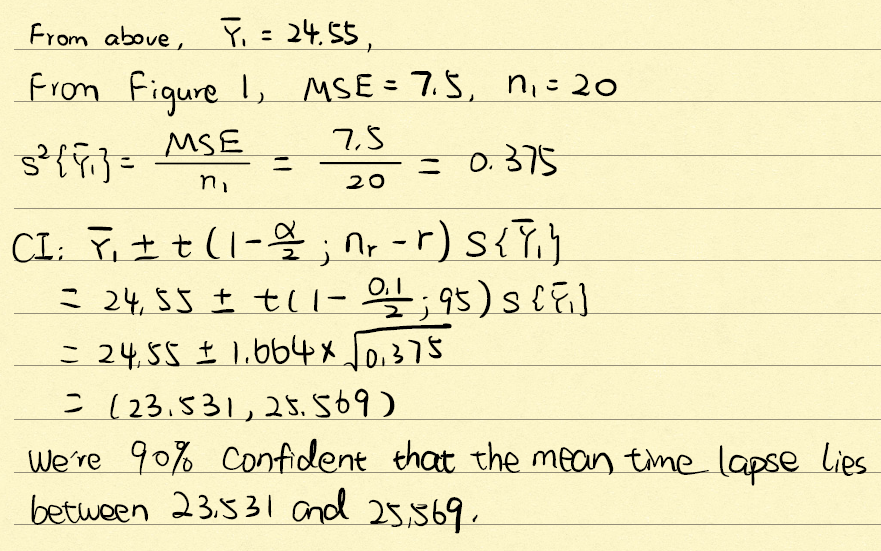 From above, Ȳ₁ = 24.55,
From Figure 1, MSE = 7.5, n₁ = 20
s²{Ȳ₁} = MSE/n₁ = 7.5/20 = 0.375
CI: Ȳ₁ ± t(1-α/2; nᵣ-r) S{Ȳ₁}
= 24.55 ± t(1-0.1/2; 95) S{Ȳ₁}
= 24.55 ± 1.664 × √0.375
= (23.531, 25.569)
We're 90% confident that the mean time lapse lies
between 23.531 and 25.569.